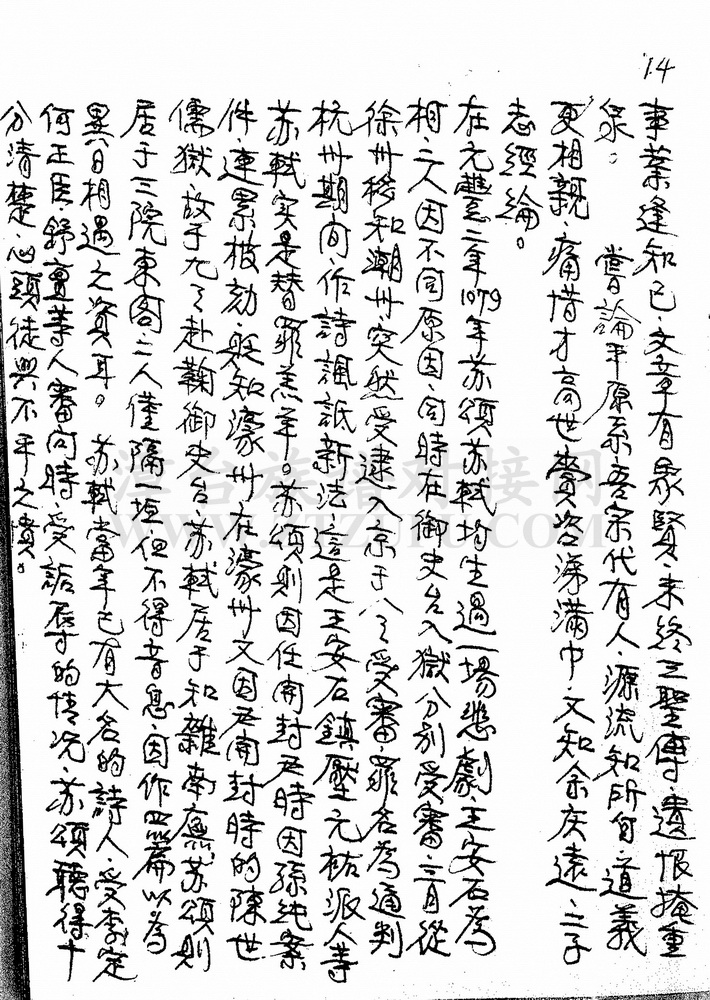 14
事業逢知己。文章有眾賢。未終三聖傳。遺恨掩重
泉。 嘗論平原系吾宗代有人。源流知所自。道義
更相親。痛惜才高世賷咨深滿巾。文知余慶遠。二子
志經綸。
在元豐二年1079年苏頌苏軾均生過一場悲劇。王安石為
相。二人因不同原因。同時在御史台入獄分別受審。三月從
徐州移知潮州突然受逮入京于八之受審。罪名為通判
杭州期间。作詩諷詆新法。這是王安石鎮壓元祐派人等
苏軾实是替罪羔羊。苏頌則因任開封尹時因孫純案
件連累被劾。貶知濠州在濠州又因尹開封時的陳世
儒獄。故于九之赴鞠御史台。苏軾居于知雜南廡。苏頌則
居于三院東阁。二人僅隔一垣。但不得音息。因作四篇以為
異日相遇之資耳。 苏軾當年已有大名的詩人。受李定
何正臣舒亶等人審问時。受詬辱的情况。苏頌聽得十
分清楚心頭徒興不平之憤。
江台族譜对接网